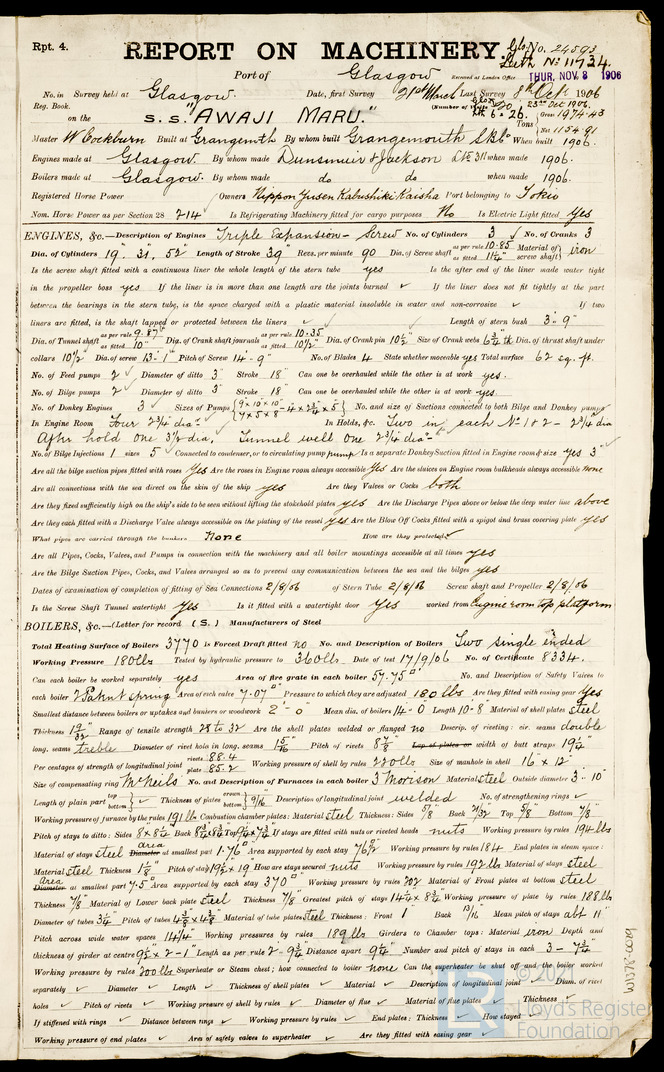 Rpt. 4.
REPORT ON MACHINERY.
No. 24593
No 11734
Port of Glasgow
Received at London Office THUR. NOV. 8 1906
No. in Survey held at Glasgow. Date, first Survey 21st March Last Survey 8th Oct 1906
Reg. Book.
23rd Oct 1906.
on the S.S. "AWAJI MARU."
Tons { Gross 1974.43
Net 1154.91
Master W Cockburn Built at Grangemth By whom built Grangemouth When built 1906.
Engines made at Glasgow. By whom made Dunsmuir & Jackson when made 1906.
Boilers made at Glasgow. By whom made do do when made 1906.
Registered Horse Power Owners Nippon Yusen Kabushiki Kaisha Port belonging to Tokio
Nom. Horse Power as per Section 28 214 Is Refrigerating Machinery fitted for cargo purposes No Is Electric Light fitted Yes
ENGINES, &c.—Description of Engines Triple Expansion - Screw No. of Cylinders 3 No. of Cranks 3
Dia. of Cylinders 19", 31", 52" Length of Stroke 39" Revs. per minute 90 Dia. of Screw shaft as per rule 10.85 as fitted 11¼" Material of screw shaft iron
Is the screw shaft fitted with a continuous liner the whole length of the stern tube yes Is the after end of the liner made water tight
in the propeller boss yes If the liner is in more than one length are the joints burned ✓ If the liner does not fit tightly at the part
between the bearings in the stern tube, is the space charged with a plastic material insoluble in water and non-corrosive ✓ If two
liners are fitted, is the shaft lapped or protected between the liners ✓ Length of stern bush 3'-9"
Dia. of Tunnel shaft as per rule 9.87" as fitted 10" Dia. of Crank shaft journals as per rule 10.35 as fitted 10½" Dia. of Crank pin 10½" Size of Crank webs Dia. of thrust shaft under
collars 10½" Dia. of screw 13'-1" Pitch of Screw 14'-9" No. of Blades 4 State whether moveable yes Total surface 62 sq. ft.
No. of Feed pumps 2 Diameter of ditto 3" Stroke 18" Can one be overhauled while the other is at work yes.
No. of Bilge pumps 2 Diameter of ditto 3" Stroke 18" Can one be overhauled while the other is at work yes
No. of Donkey Engines 3 Sizes of Pumps No. and size of Suctions connected to both Bilge and Donkey pumps
In Engine Room Four 2¾ dia. In Holds, &c. Two in each No 1 & 2 - 2¾ dia
After hold one 3½ dia. Tunnel well one 2¾ dia
No. of Bilge Injections 1 sizes 5" Connected to condenser, or to circulating pump pump Is a separate Donkey Suction fitted in Engine room & size yes 3"
Are all the bilge suction pipes fitted with roses Yes Are the roses in Engine room always accessible Yes Are the sluices on Engine room bulkheads always accessible none
Are all connections with the sea direct on the skin of the ship yes Are they Valves or Cocks both
Are they fixed sufficiently high on the ship's side to be seen without lifting the stokehold plates yes Are the Discharge Pipes above or below the deep water line above
Are they each fitted with a Discharge Valve always accessible on the plating of the vessel yes Are the Blow Off Cocks fitted with a spigot and brass covering plate yes
What pipes are carried through the bunkers None How are they protected ✓
Are all Pipes, Cocks, Valves, and Pumps in connection with the machinery and all boiler mountings accessible at all times yes
Are the Bilge Suction Pipes, Cocks, and Valves arranged so as to prevent any communication between the sea and the bilges yes
Dates of examination of completion of fitting of Sea Connections 2/8/06 of Stern Tube 2/8/06 Screw shaft and Propeller 2/8/06
Is the Screw Shaft Tunnel watertight Yes Is it fitted with a watertight door Yes worked from Engine room top platform
BOILERS, &c.—(Letter for record (S.) Manufacturers of Steel
Total Heating Surface of Boilers 3770 Is Forced Draft fitted no No. and Description of Boilers Two single ended
Working Pressure 180 lbs Tested by hydraulic pressure to 360 lbs. Date of test 17/9/06 No. of Certificate 8334.
Can each boiler be worked separately yes Area of fire grate in each boiler 57.75 No. and Description of Safety Valves to
each boiler 2 Patent spring Area of each valve 7.07" Pressure to which they are adjusted 180 lbs Are they fitted with easing gear Yes
Smallest distance between boilers or uptakes and bunkers or woodwork 2'-0" Mean dia. of boilers 14'-0 Length 10-8 Material of shell plates steel
Thickness 1 9/32 Range of tensile strength 28 to 32 Are the shell plates welded or flanged no Descrip. of riveting: cir. seams double
long. seams treble Diameter of rivet holes in long. seams 1 5/16 Pitch of rivets 8 7/8 Lap of plates or width of butt straps 19¼"
Per centages of strength of longitudinal joint rivets 88.4 plate 85.2 Working pressure of shell by rules 220 lbs Size of manhole in shell 16" x 12"
Size of compensating ring McNeils No. and Description of Furnaces in each boiler 3 Morison Material steel Outside diameter 3'-10"
Length of plain part top bottom ✓ Thickness of plates crown bottom 9/16 Description of longitudinal joint welded No. of strengthening rings ✓
Working pressure of furnace by the rules 191 lbs Combustion chamber plates: Material steel Thickness: Sides 5/8" Back 21/32 Top 5/8" Bottom 7/8"
Pitch of stays to ditto: Sides 8 x 8½ Back Top If stays are fitted with nuts or riveted heads nuts Working pressure by rules 194 lbs
Material of stays steel Diameter Area at smallest part 1.76" Area supported by each stay Working pressure by rules 184 End plates in steam space:
Material steel Thickness 1 1/8" Pitch of stays 19½ x 19 How are stays secured nuts Working pressure by rules 192 lbs Material of stays steel
Diameter Area at smallest part 7.5" Area supported by each stay 370" Working pressure by rules 202 Material of Front plates at bottom steel
Thickness 7/8" Material of Lower back plate steel Thickness 7/8" Greatest pitch of stays 14¼ x 8¾ Working pressure of plate by rules 188 lbs
Diameter of tubes 3¼" Pitch of tubes Material of tube plates steel Thickness: Front 1" Back 13/16 Mean pitch of stays abt 11"
Pitch across wide water spaces 14¼" Working pressures by rules 189 lbs Girders to Chamber tops: Material iron Depth and
thickness of girder at centre Length as per rule 2'-9¾ Distance apart 9¼" Number and pitch of stays in each 3 - 7¾"
Working pressure by rules 200 lbs Superheater or Steam chest; how connected to boiler none Can the superheater be shut off and the boiler worked
separately ✓ Diameter ✓ Length ✓ Thickness of shell plates ✓ Material ✓ Description of longitudinal joint ✓ Diam. of rivet
holes ✓ Pitch of rivets ✓ Working pressure of shell by rules ✓ Diameter of flue ✓ Material of flue plates ✓ Thickness ✓
If stiffened with rings ✓ Distance between rings ✓ Working pressure by rules ✓ End plates: Thickness ✓ How stayed ✓
Working pressure of end plates ✓ Area of safety valves to superheater ✓ Are they fitted with easing gear ✓
© 2021
Lloyd's Register
Foundation